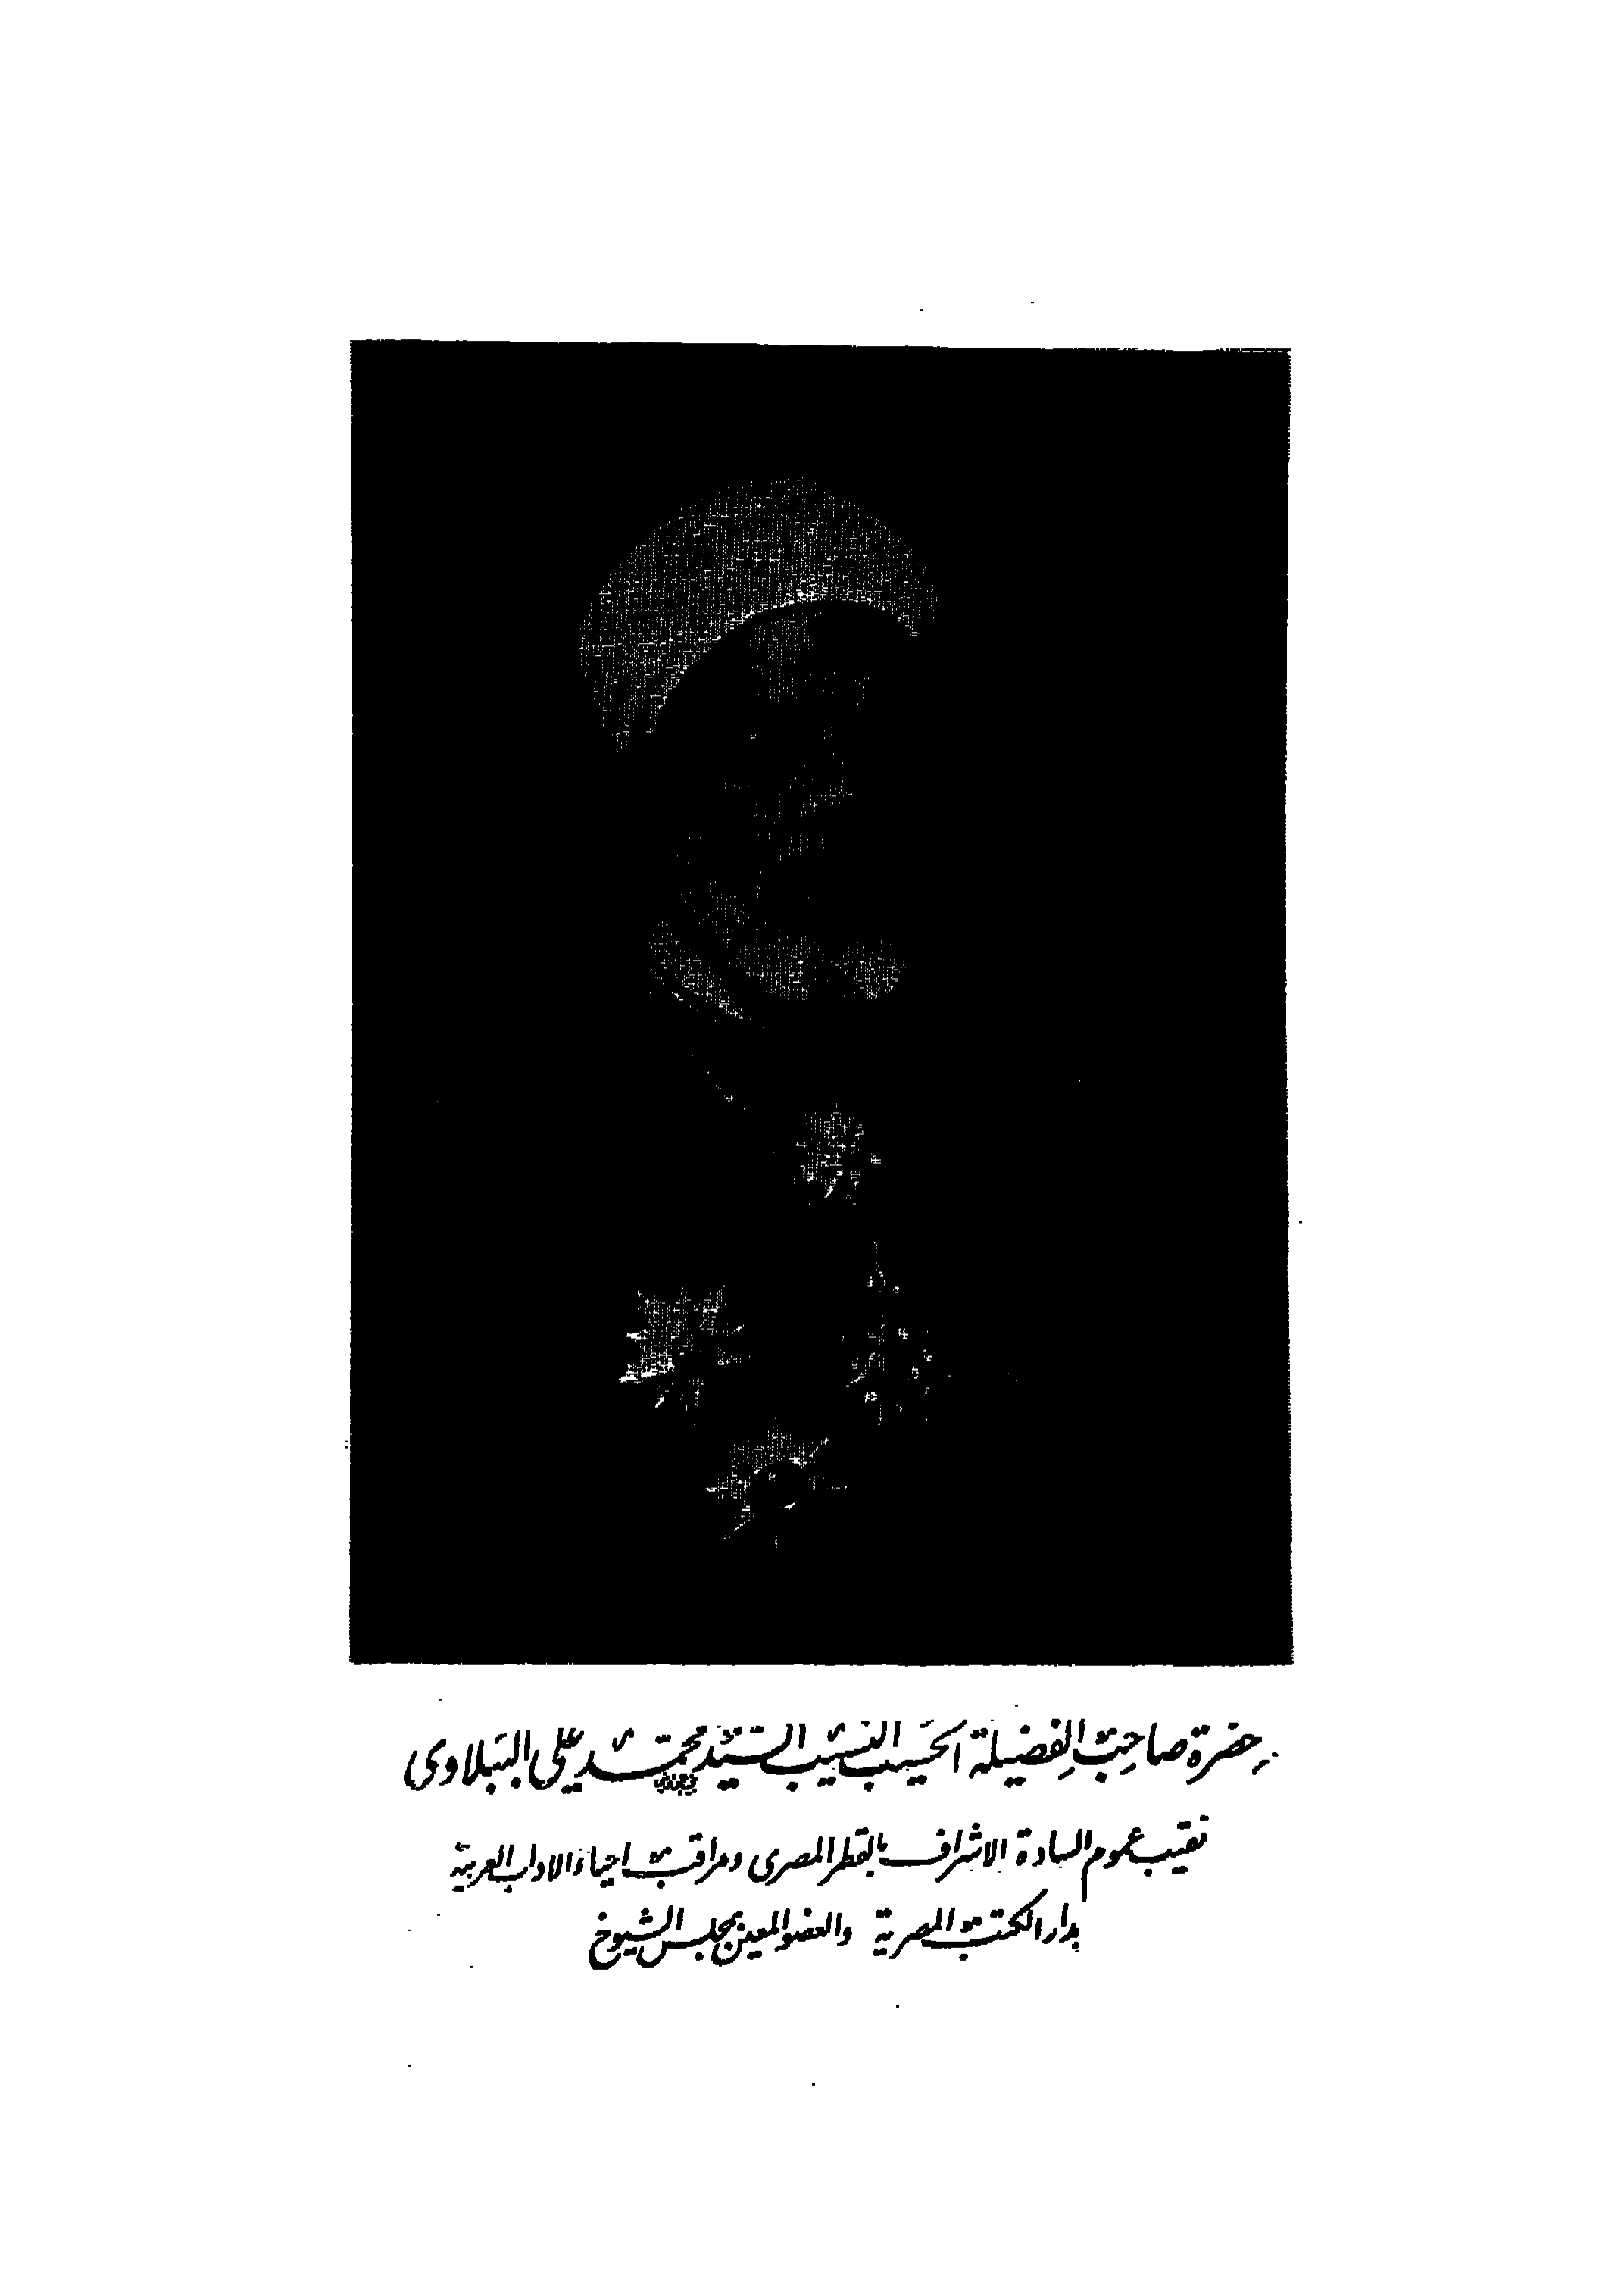 حضرة صاحب الفضيلة الحسيب النسيب السيد محمد علي الببلاوى
نقيب عموم السادة الاشراف بالقطر المصرى ومراقب احياء الاداب العربية
بدار الكتب المصرية والعضو المعين بمجلس الشيوخ